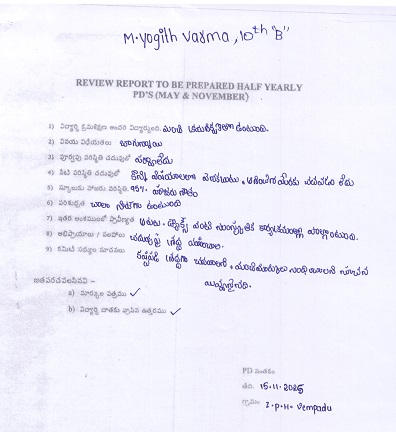 M. Yogith Varma, 10th "B"
REVIEW REPORT TO BE PREPARED HALF YEARLY
PD'S (MAY & NOVEMBER)
1) విద్యార్థి క్రమశిక్షణ అందరి విద్యార్థులు మంచి క్రమశిక్షణతో ఉంటుంది.
2) వినయ విధేయతలు బాగున్నాయి
3) పూర్వపు పరిస్థితి చదువులో పర్వాలేదు
4) నేటి పరిస్థితి చదువులో కొన్ని విషయాలలో వెనుకబాటు,
5) స్కూలుకు హాజరు పరిస్థితి 95% హాజరు శాతం
6) పరిశుభ్రత చాలా నీట్‌గా ఉంటుంది
7) ఇతర అంశములలో ప్రావీణ్యత ఆటలు, డ్యాన్స్ వంటి సాంస్కృతిక పాల్గొంటుంది.
8) అభిప్రాయాలు / సలహాలు చదువుపై శ్రద్ధ
9) కమిటీ సభ్యుల సూచనలు కష్టపడి శ్రద్ధగా చదవాలని, మంచి మార్కులు సాధించాలని సూచన
జతపరచవలసినవి –
a) మార్కుల పత్రము ✓
b) విద్యార్థి దాతకు వ్రాసిన ఉత్తరము ✓
PD సంతకం
తేది: 15.11.2025
గ్రామం: I.P.H. Vempadu